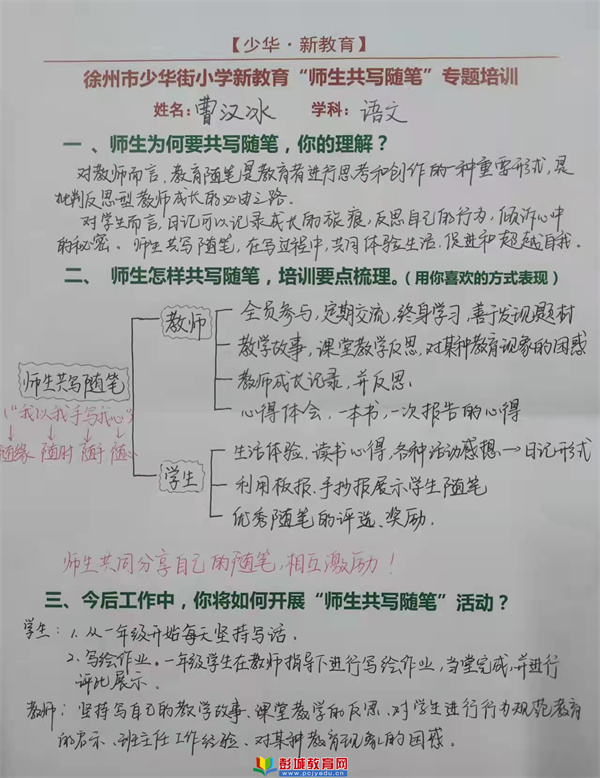 【少华·新教育】
徐州市少华街小学新教育“师生共写随笔”专题培训
姓名：曹汉冰 学科：语文
一、师生为何要共写随笔，你的理解？
对教师而言，教育随笔是教育者进行思考和创作的一种重要形式，是
批判反思型教师成长的必由之路。
对学生而言，日记可以记录成长的痕，反思自己的行为，倾诉心中
的秘密。师生共写随笔，在写过程中，共同体验生活，促进和超越自我。
二、师生怎样共写随笔，培训要点梳理。（用你喜欢的方式表现）
教师
全员参与，定期交流，终身学习，善于发现题材
教学故事，课堂教学反思，对某种教育现象的困惑
教师成长记录，并反思
心得体会，一本书，一次报告的心得
师生共写随笔
（“我以我手写我心”）
随缘 随时 随手 随心
学生
生活体验、读书心得，各种活动感想→日记形式
利用板报、手抄报展示学生随笔
优秀随笔的评选、奖励.
师生共同分享自己的随笔，相互激励！
三、今后工作中，你将如何开展“师生共写随笔”活动？
学生：1.从一年级开始每天坚持写话.
2.写绘作业。一年级学生在教师指导下进行写绘作业，当堂完成，并进行
评比展示.
教师：坚持写自己的教学故事、课堂教学的反思、对学生进行行为规范教育
的启示、班主任工作经验、对某种教育现象的困惑。
彭城教育网
www.pcjyedu.cn